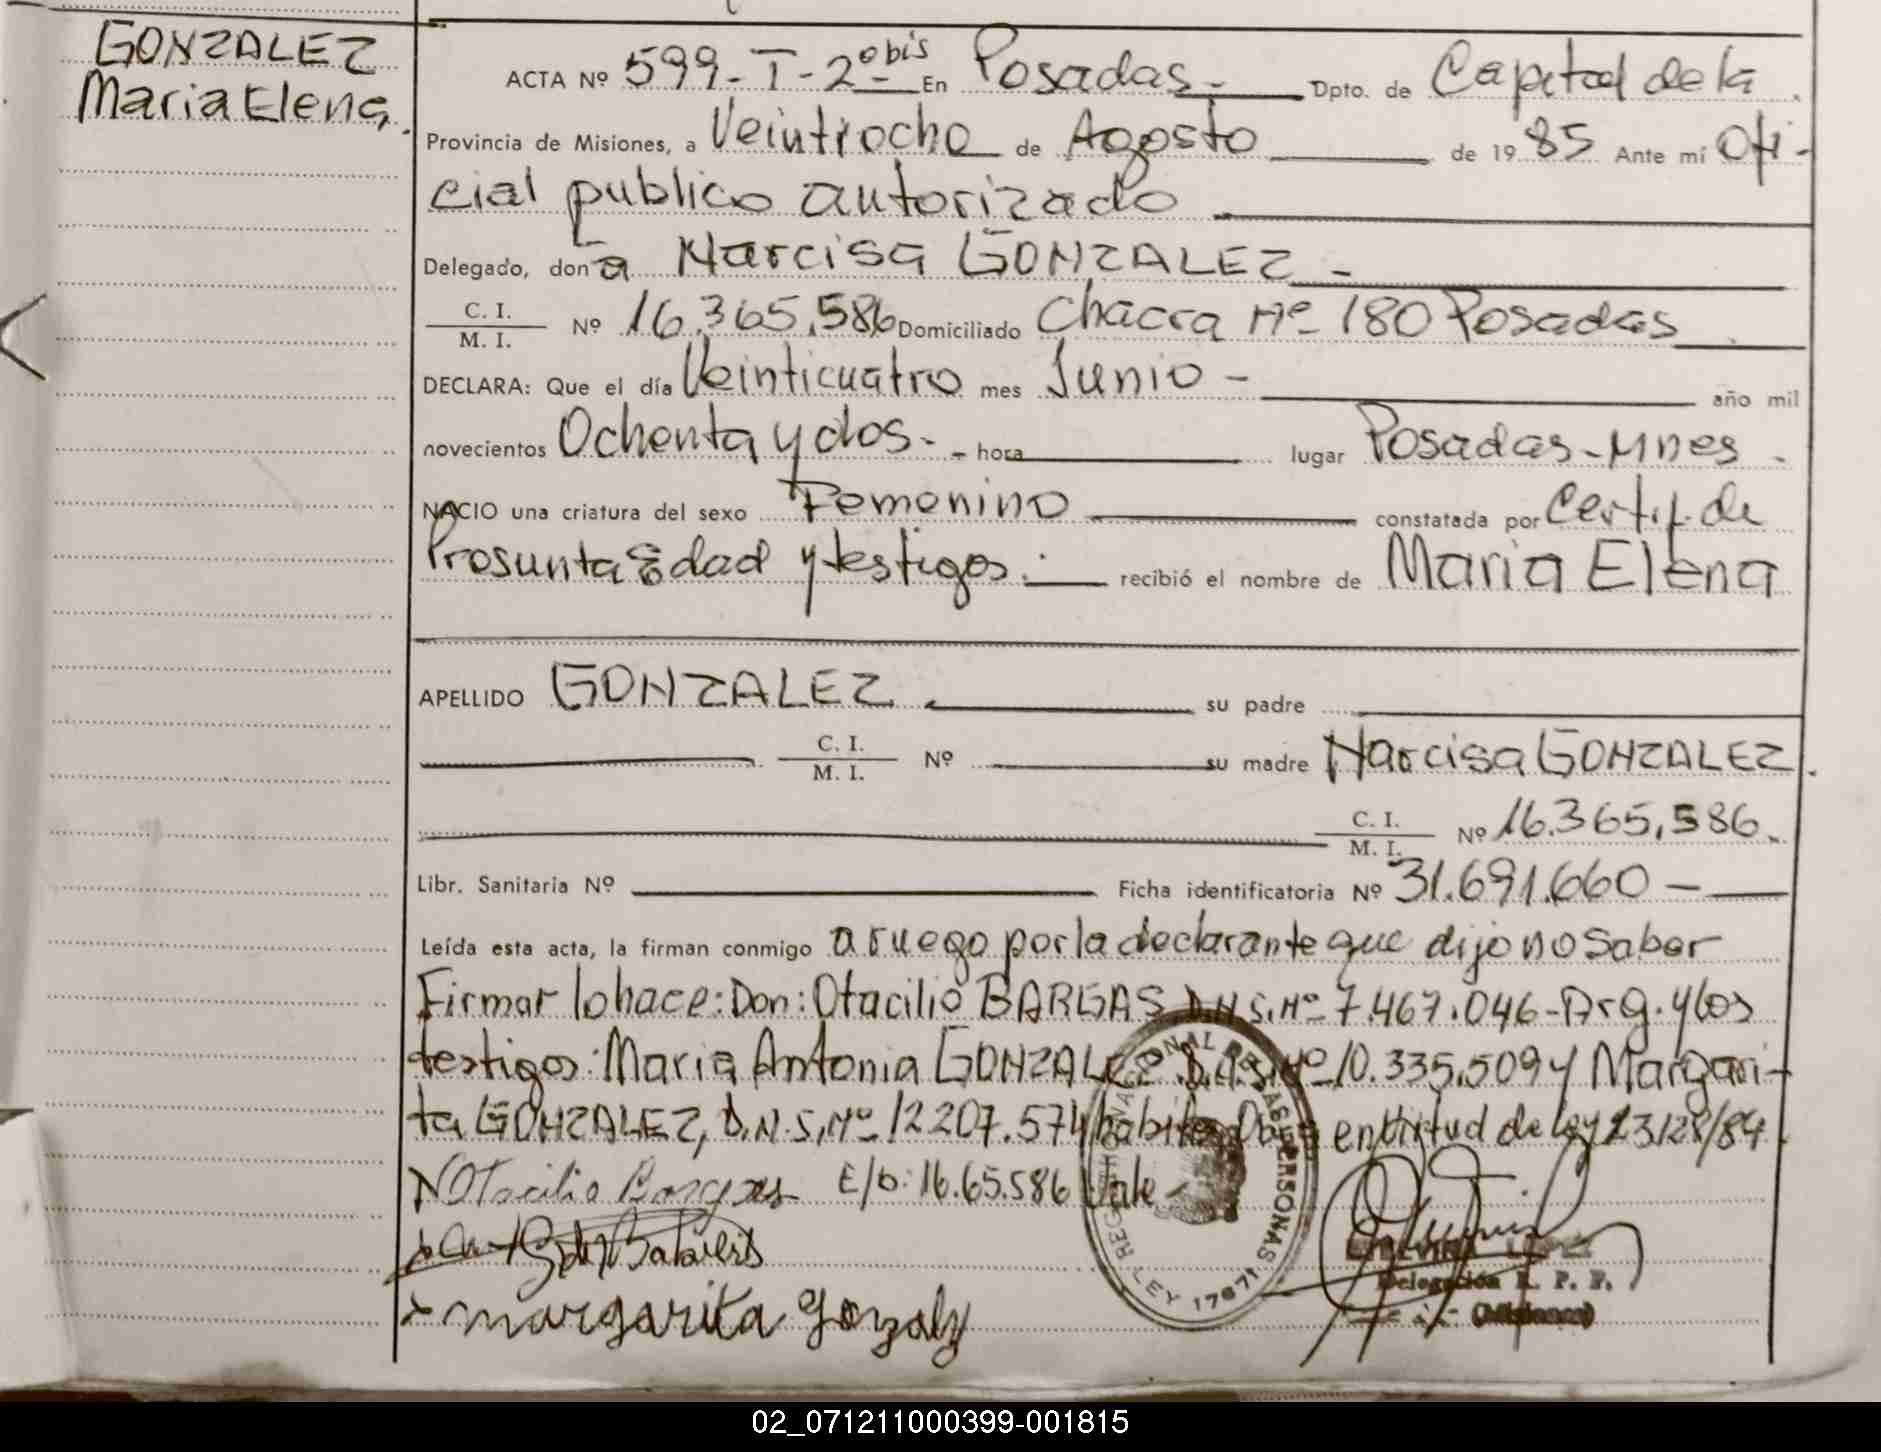 GONZALEZ
Maria Elena.
ACTA Nº 599-I-2º bis En Posadas - Dpto. de Capital de la
Provincia de Misiones, a Veintiocho de Agosto de 1985 Ante mí Ofi-
cial publico autorizado
Delegado, donа Narcisa GONZALEZ -
C. I.
M. I. Nº 16.365.586 Domiciliado Chacra Nº 180 Posadas
DECLARA: Que el día Veinticuatro mes Junio - año mil
novecientos Ochenta y dos. - hora lugar Posadas-Mnes.
NACIO una criatura del sexo Femenino constatada por Certif. de
Prosunta Edad y testigos. recibió el nombre de Maria Elena
APELLIDO GONZALEZ su padre
C. I.
M. I. Nº su madre Narcisa GONZALEZ.
C. I.
M. I. Nº 16.365.586.
Libr. Sanitaria Nº Ficha identificatoria Nº 31.691.660 -
Leída esta acta, la firman conmigo a ruego por la declarante que dijo no saber
Firmar lo hace: Don: Otacilio BARGAS, D.N.S. Nº 7.467.046-Arg. y los
testigos: Maria Antonia GONZALEZ Nº 10.335.509 y Margari-
ta GONZALEZ, D.N.S. Nº 12.207.574 en birtud de ley 23128/84.
Otacilio Bargas E/b: 16.65.586 Vale -
margarita Gonzalez
REGISTRO NACIONAL DE LAS PERSONAS
LEY 17671
LOPEZ
Delegación R. P. P.
(Misiones)
02_071211000399-001815